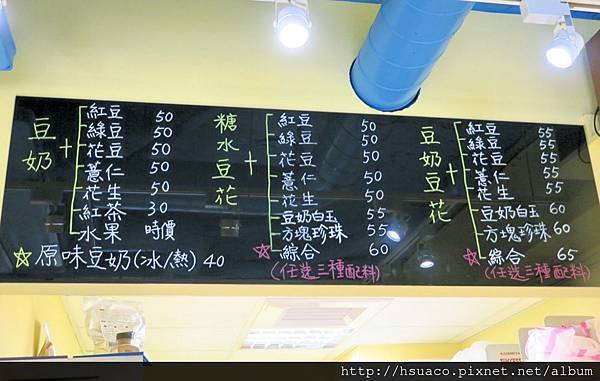 豆奶+
紅豆 50
綠豆 50
花豆 50
薏仁 50
花生 50
紅茶 30
水果 時價
☆原味豆奶(冰/熱) 40
糖水豆花+
紅豆 50
綠豆 50
花豆 50
薏仁 50
花生 50
豆奶白玉 55
方塊珍珠 55
☆綜合 60
(任選三種配料)
豆奶豆花+
紅豆 55
綠豆 55
花豆 55
薏仁 55
花生 55
豆奶白玉 60
方塊珍珠 60
☆綜合 65
(任選三種配料)
http://hsuaco.pixnet.net/album